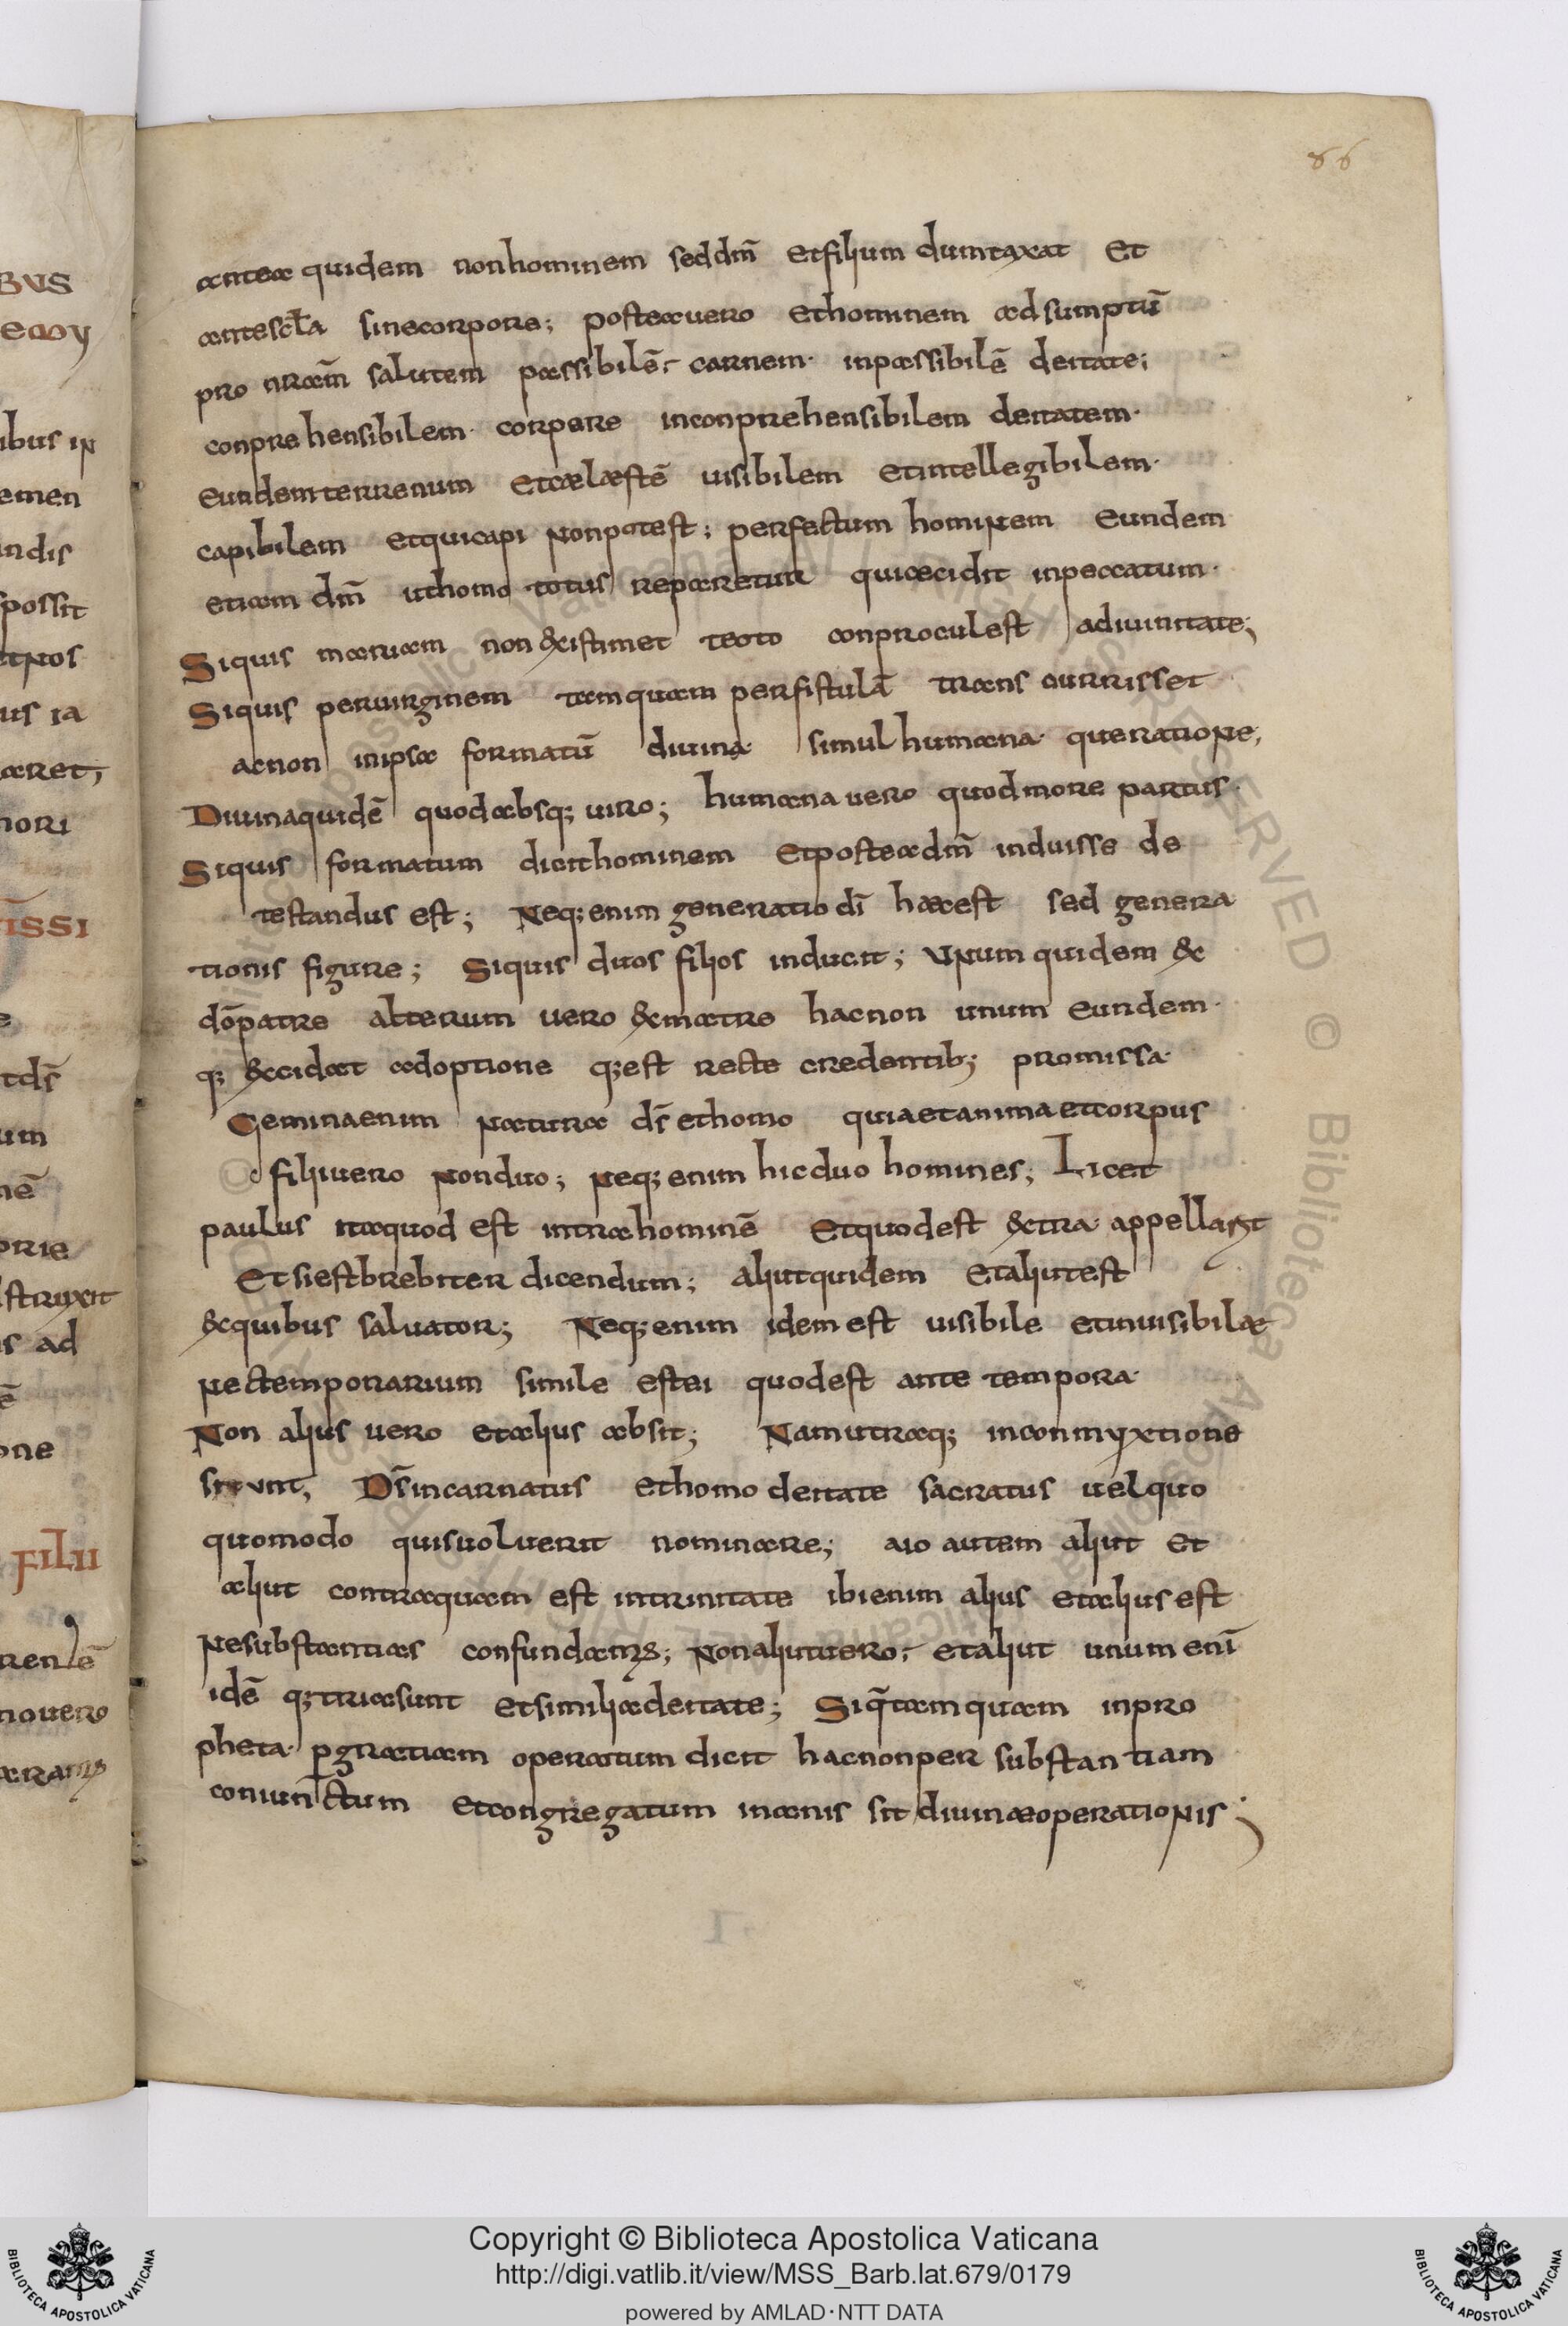 BUS
emoy
ibus in
emen
undis
possit
etnos
us ia
aret,
nori
issi
e
tds̄
um
nē
orie
struxit
s ad
ē
one
FILII
renlē
novero
86
antea quidem nonhominem seddm̄ etfilium dumtaxat et
antescl̄a sinecorpore; posteavero ethominem adsumptū
pro nram̄ salutem passibilē carnem· inpassibilē deitate;
conprehensibilem· corpore inconprehensibilem deitatem·
eundemterrenum etcælæstē visibilem etintellegibilem·
capibilem etquicapi nonpotest; perfectum hominem eundem
etiam dm̄ uthomo totus reparetur quicecidit inpeccatum·
Siquis mariam non existimet teoto conproculest adivinitate;
Siquis pervirginem tamquam perfistulā trans currisset
acnon inipsa formatū divina· simul humana· queratione,
Divinaquidē quodabsq; viro; humana vero quodmore partus·
Siquis formatum dicithominem etposteadm̄ induisse de
testandus est; Neq; enim generatio dī hæcest sed genera
tionis figure; Siquis duos filios inducit; Unum quidem ex
dōpatre alterum vero exmatre hacnon unum eundem·
q; excidat adoptione q; est recte credentib; promissa·
Geminaenim natura ds̄ ethomo quiaetanimaetcorpus
filiivero nonduo; neq; enim hicduo homines; Licet
paulus itaquod est intrahominē Etquodest extra· appellarit
Etsiestbrebiter dicendum; aliutquidem etaliutest
exquibus salvator; Neq; enim idem est visibile etinvisibilæ
nectemporarium simile estei quodest ante tempora·
Non alius vero etalius absit; Namutraq; inconmyxtione
sitvnt, Ds̄incarnatus ethomo deitate sacratus velquo
quomodo quisvoluerit nominare; aio autem aliut et
aliut contraquam est intrinitate ibienim alius etalius est
Nesubstantias confundam; Nonaliutvero; etaliut unum enī
idē q; triasunt etsimiliadeitate; Siq̄tamquam inpro
pheta· pgratiam operatum dicit hacnonper substantiam
coniunctum etcongregatum inanis sit divinæoperationis;
Copyright © Biblioteca Apostolica Vaticana
http://digi.vatlib.it/view/MSS_Barb.lat.679/0179
powered by AMLAD·NTT DATA
BIBLIOTECA APOSTOLICA VATICANA
BIBLIOTECA APOSTOLICA VATICANA